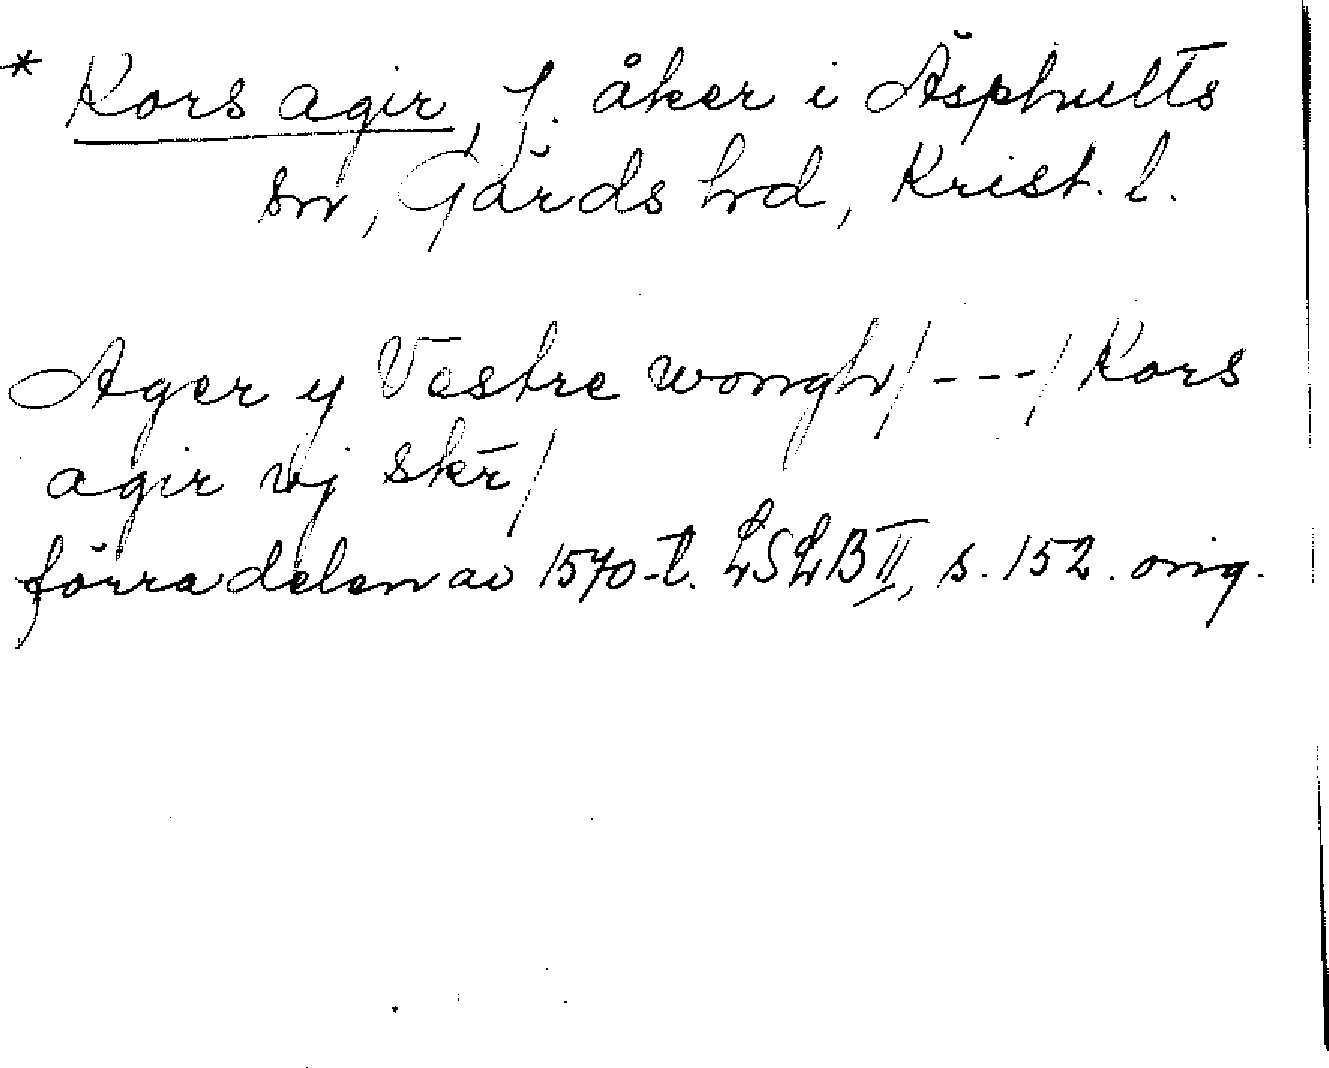 * Kors agir, f. åker i Äsphults
sn, Gärds hd, Krist. l.
Ager y Vestre wongh/---/Kors
agir vj skr̄/
förra delen av 1570-t. LSLB II, s. 152. orig.